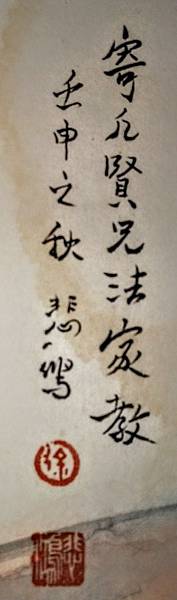 寄凡賢兄法家教
壬申之秋 悲鴻
徐
悲鴻